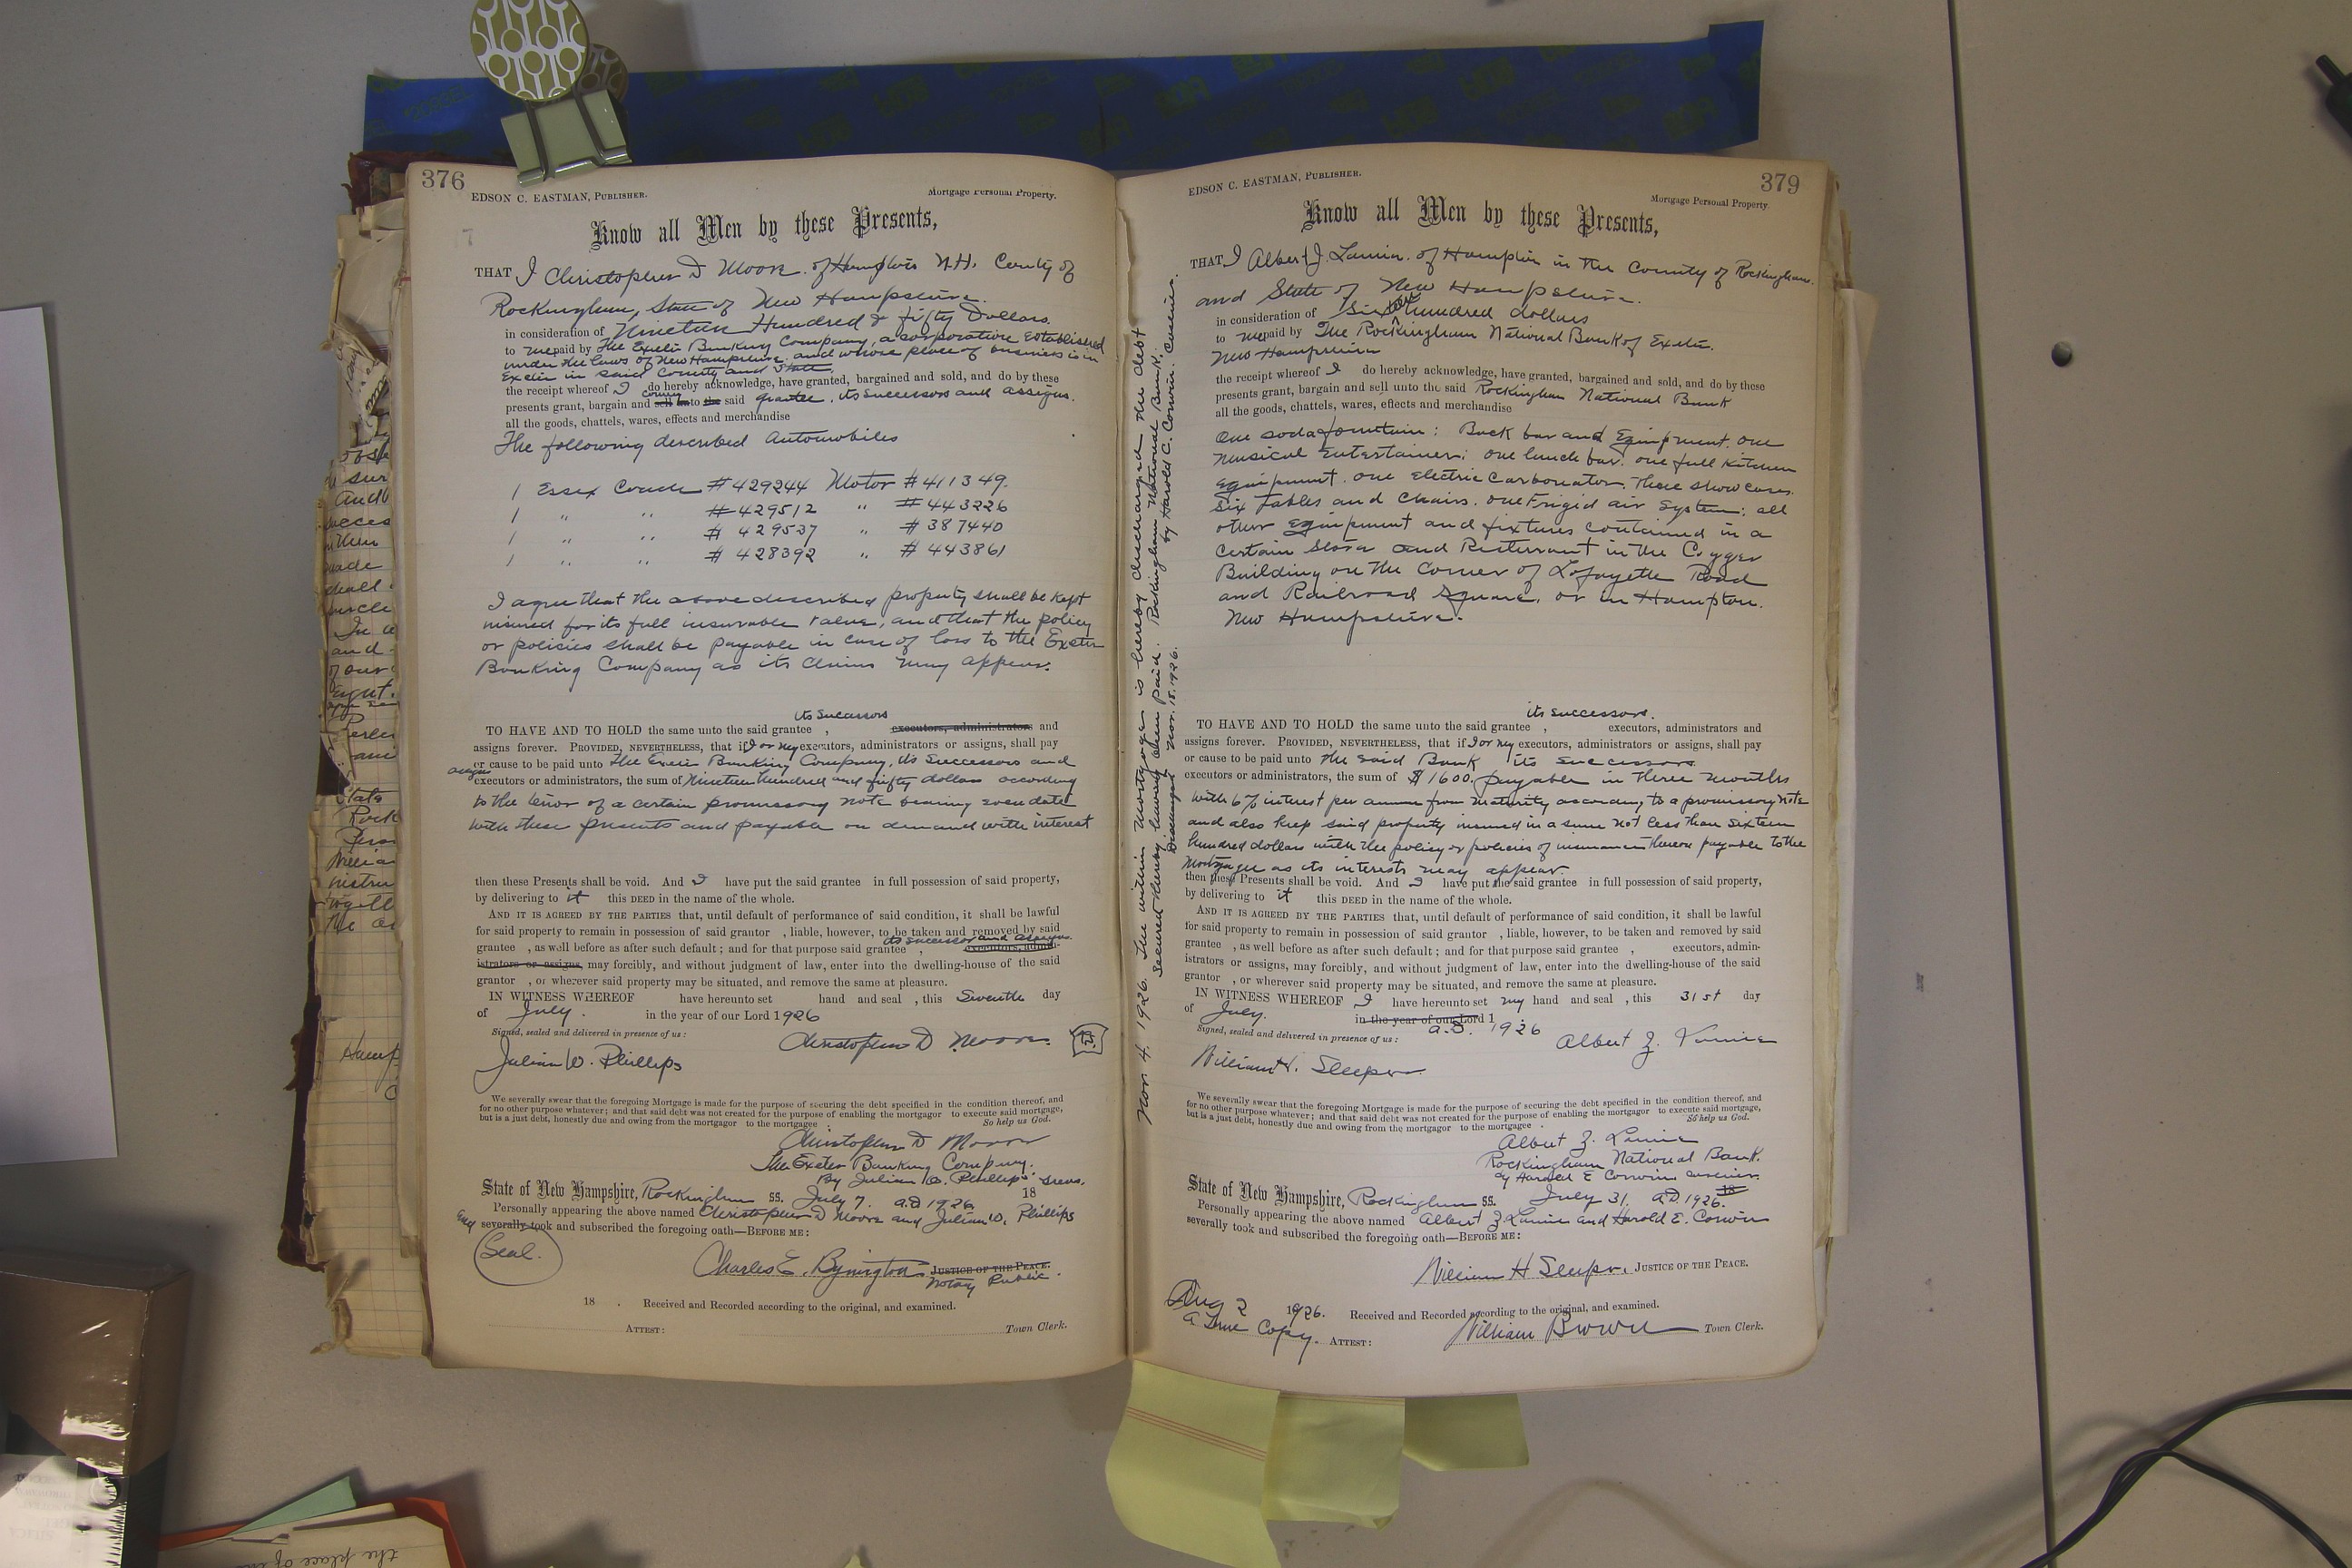 376
EDSON C. EASTMAN, PUBLISHER.
Mortgage Personal Property.
Know all Men by these Presents,
THAT I Christopher D Moore. of Hampton N.H. County of
Rockingham, State of New Hampshire.
in consideration of Nineteen Hundred & fifty Dollars.
to me paid by The Exeter Banking Company, a corporation established
under the laws of New Hampshire. and whose place of business is in
Exeter in said County and State.
the receipt whereof I do hereby acknowledge, have granted, bargained and sold, and do by these
presents grant, bargain and sell convey unto the said grantee, its successors and assigns.
all the goods, chattels, wares, effects and merchandise
The following described Automobiles
1 Essex Coach #429244 Motor #411349.
1 " " #429512 " #443226
1 " " #429537 " #387440
1 " " #428392 " #443861
I agree that the above described property shall be kept
insured for its full insurable value, and that the policy
or policies shall be payable in case of loss to the Exeter
Banking Company as its claims may appear.
its Sucassors
TO HAVE AND TO HOLD the same unto the said grantee , executors, administrators and
assigns forever. PROVIDED, NEVERTHELESS, that if I or my executors, administrators or assigns, shall pay
or cause to be paid unto The Exeter Banking Company, its Successors and
assigns executors or administrators, the sum of Nineteen hundred and fifty dollars according
to the tenor of a certain promissory note bearing even date
with these presents and payable on demand with interest
then these Presents shall be void. And I have put the said grantee in full possession of said property,
by delivering to it this DEED in the name of the whole.
AND IT IS AGREED BY THE PARTIES that, until default of performance of said condition, it shall be lawful
for said property to remain in possession of said grantor , liable, however, to be taken and removed by said
its successor and assigns
grantee , as well before as after such default ; and for that purpose said grantee , executors, admin-
istrators or assigns, may forcibly, and without judgment of law, enter into the dwelling-house of the said
grantor , or wherever said property may be situated, and remove the same at pleasure.
IN WITNESS WHEREOF have hereunto set hand and seal , this Seventh day
of July. in the year of our Lord 1926
Signed, sealed and delivered in presence of us :
Christopher D Moore.
Julian W. Phillips
We severally swear that the foregoing Mortgage is made for the purpose of securing the debt specified in the condition thereof, and
for no other purpose whatever ; and that said debt was not created for the purpose of enabling the mortgagor to execute said mortgage,
but is a just debt, honestly due and owing from the mortgagor to the mortgagee So help us God.
Christopher D Moore
The Exeter Banking Company.
By Julian W. Phillips Treas.
State of New Hampshire, Rockingham SS. July 7. A.D 1926 18
Personally appearing the above named Christopher D Moore and Julian W. Phillips
severally took and subscribed the foregoing oath—BEFORE ME:
Seal.
Charles E. Byington JUSTICE OF THE PEACE.
Notary Public.
18 . Received and Recorded according to the original, and examined.
ATTEST: Town Clerk.
Nov 4. 1926. The within mortgage is hereby discharged the debt
secured thereby having been paid. Rockingham National Bank,
by Harold C. Corwin. Cashier.
Discharged Nov. 18, 1926.
379
EDSON C. EASTMAN, PUBLISHER.
Mortgage Personal Property.
Know all Men by these Presents,
THAT I Albert J. Lamie. of Hampton in the County of Rockingham.
and State of New Hampshire.
in consideration of Sixteen hundred dollars
to me paid by The Rockingham National Bank of Exeter.
New Hampshire
the receipt whereof I do hereby acknowledge, have granted, bargained and sold, and do by these
presents grant, bargain and sell unto the said Rockingham National Bank
all the goods, chattels, wares, effects and merchandise
One soda fountain: Back bar and Equipment. one
Musical Entertainer; one lunch bar. one full kitchen
equipment. one Electric Carbonator. Three show cases.
Six Tables and Chairs. one Frigid air System; all
other Equipment and fixtures contained in a
certain Store and Resterrant in the Cogger
Building on the Corner of Lafayette Road
and Railroad Square, or in Hampton.
New Hampshire.
its successors.
TO HAVE AND TO HOLD the same unto the said grantee , executors, administrators and
assigns forever. PROVIDED, NEVERTHELESS, that if I or my executors, administrators or assigns, shall pay
or cause to be paid unto the said Bank its successors
executors or administrators, the sum of $1600. payable in three months
with 6% interest per annum from maturity according to a promissory note
and also keep said property insured in a sum not less than sixteen
hundred dollars with the policy or policies of insurance thereon payable to the
Mortgagee as its interests may appear.
then these Presents shall be void. And I have put the said grantee in full possession of said property,
by delivering to it this DEED in the name of the whole.
AND IT IS AGREED BY THE PARTIES that, until default of performance of said condition, it shall be lawful
for said property to remain in possession of said grantor , liable, however, to be taken and removed by said
grantee , as well before as after such default ; and for that purpose said grantee , executors, admin-
istrators or assigns, may forcibly, and without judgment of law, enter into the dwelling-house of the said
grantor , or wherever said property may be situated, and remove the same at pleasure.
IN WITNESS WHEREOF I have hereunto set my hand and seal , this 31st day
of July. in the year of our Lord 1
a.D. 1926
Signed, sealed and delivered in presence of us :
Albert J. Lamie
William H. Sleeper
We severally swear that the foregoing Mortgage is made for the purpose of securing the debt specified in the condition thereof, and
for no other purpose whatever ; and that said debt was not created for the purpose of enabling the mortgagor to execute said mortgage,
but is a just debt, honestly due and owing from the mortgagor to the mortgagee . So help us God.
Albert J. Lamie
Rockingham National Bank.
By Harold E Corwin cashier.
State of New Hampshire, Rockingham SS. July 31, A.D. 1926. 18
Personally appearing the above named Albert J Lamie and Harold E. Corwin
severally took and subscribed the foregoing oath—BEFORE ME:
William H Sleeper. JUSTICE OF THE PEACE.
Aug 2 1926. Received and Recorded according to the original, and examined.
A True Copy. ATTEST: William Brown Town Clerk.